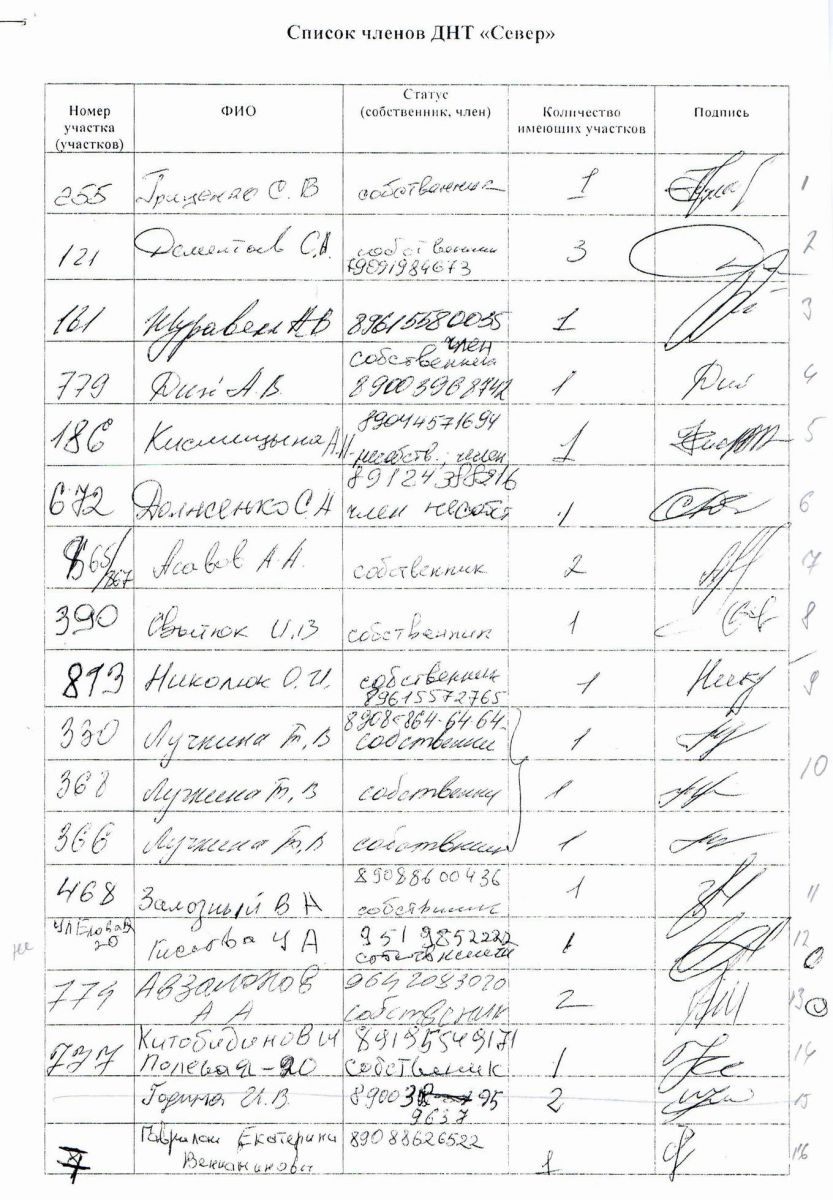 Список членов ДНТ «Север»
Номер участка (участков) ФИО Статус (собственник, член) Количество имеющих участков Подпись
255 Гриценко С. В собственник 1 1
121 С.А. собственник 79091984673 3 2
161 Журавель А В 89615580035 1 3
член
779 А.В. собственник 89003968742 1 4
186 Кислицына А.И. 89044571694 несобств., член 1 5
672 Долженко С А 89124388216 член несобст 1 6
865/867 А.А. собственник 2 7
390 И.В собственник 1 8
893 Николюк О.И. собственник 89615572765 1 9
330 Лучкина Т.В 8908-864-64-64 собственни 1
368 Лучкина Т.В собственни 1 10
366 Лучкина Т.В собственник 1
468 Залозный В Н 89088600436 собственник 1 11
не ул Еловая 20 У А 951 9852222 1 12
774 Авзалонов А А 9642083020 собственник 2 13
737 Полевая-20 89195549171 собственник 1 14
Година И.В. 2 15
Екатерина 89088626522 1 16